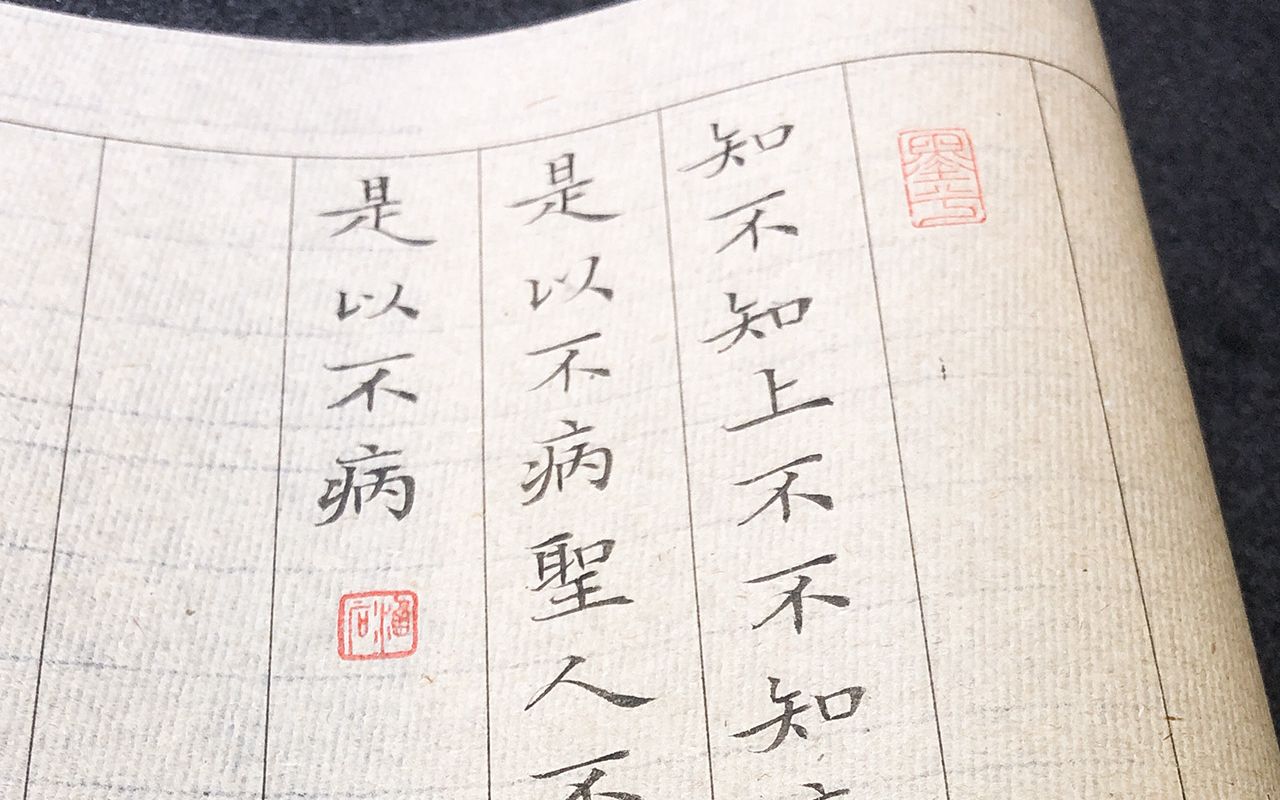 知不知上不不知
是以不病聖人不
是以不病